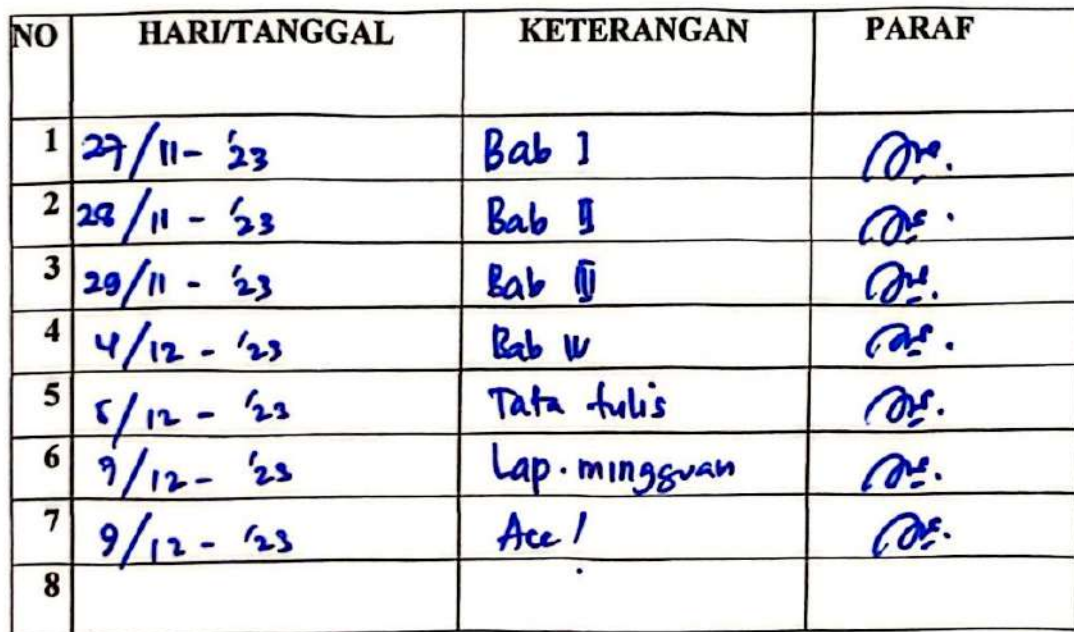 NO HARI/TANGGAL KETERANGAN PARAF
1 27/11 - '23 Bab I
2 28/11 - '23 Bab II
3 29/11 - '23 Bab III
4 4/12 - '23 Bab IV
5 5/12 - '23 Tata tulis
6 /12 - '23 Lap. mingguan
7 9/12 - '23 Acc!
8